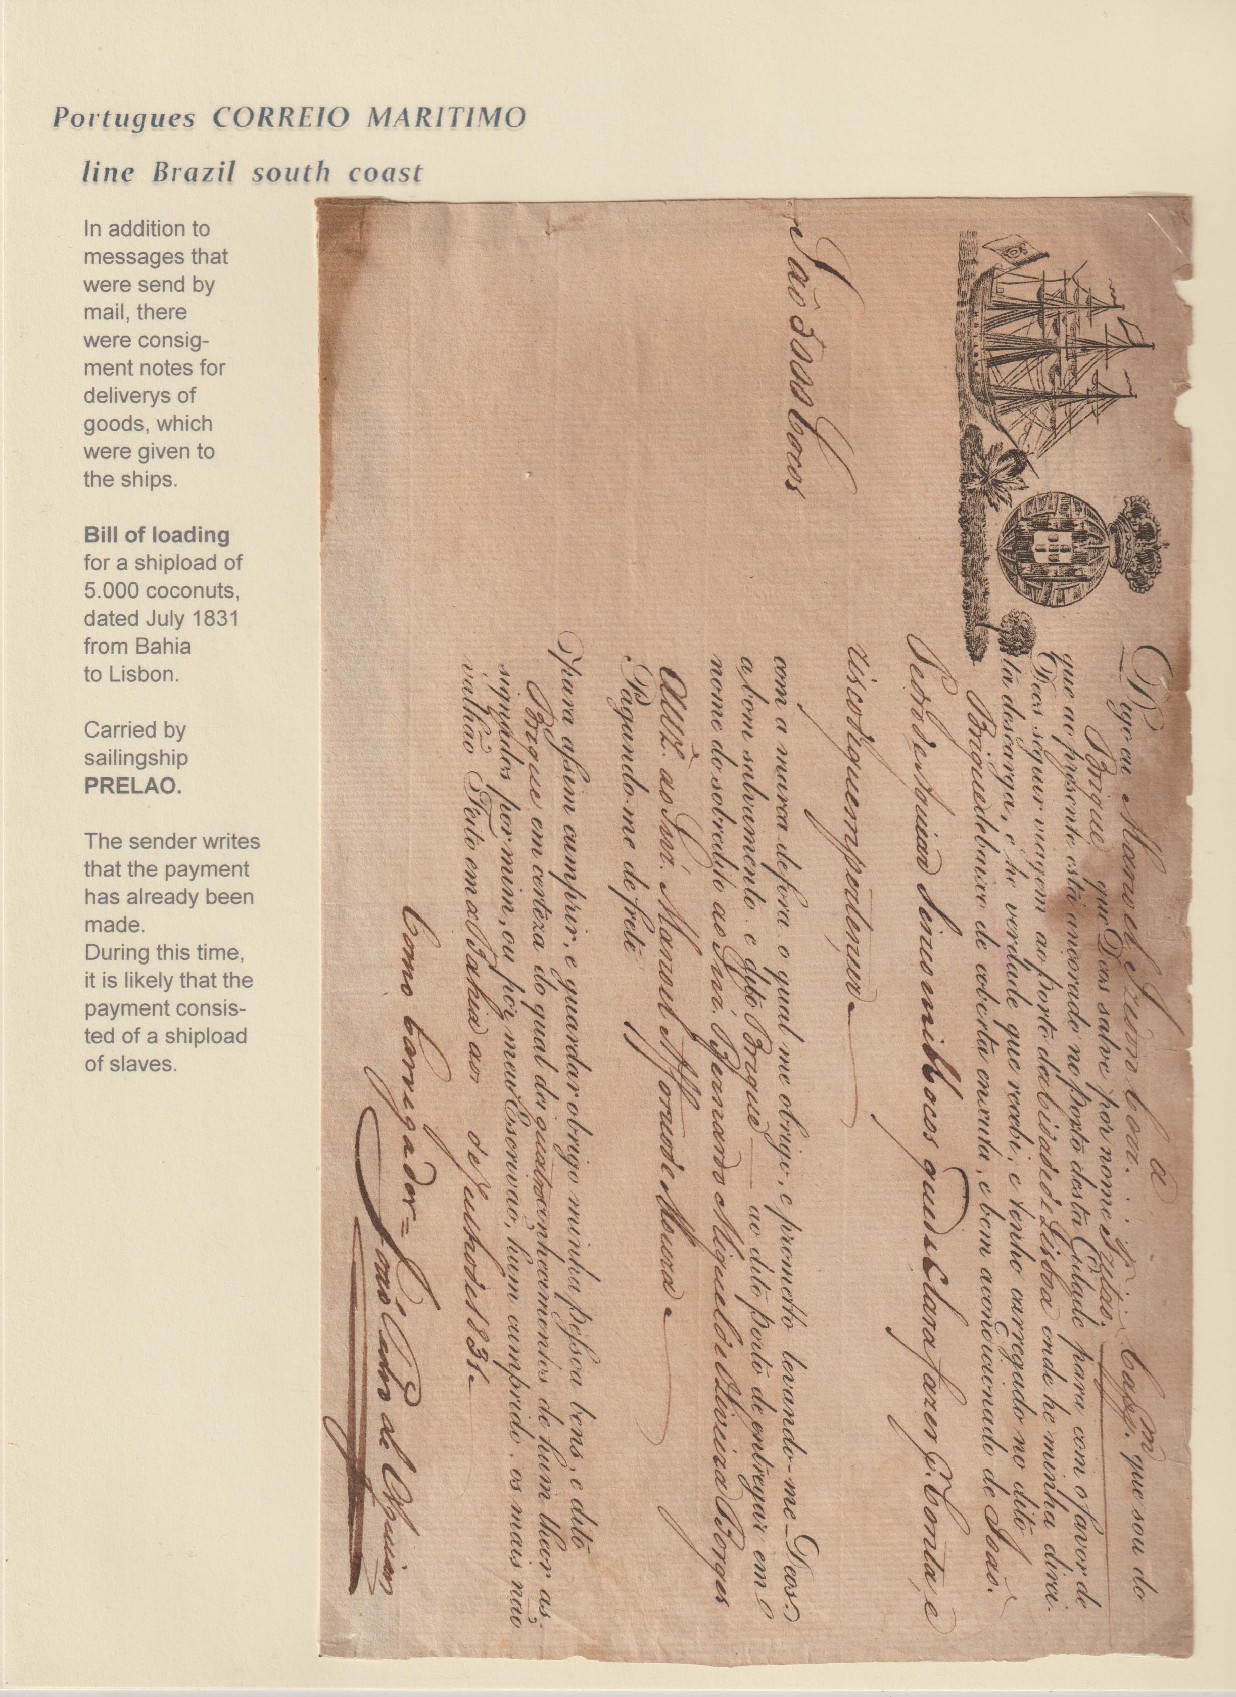 Portugues CORREIO MARITIMO
line Brazil south coast
In addition to
messages that
were send by
mail, there
were consig-
ment notes for
deliverys of
goods, which
were given to
the ships.
Bill of loading
for a shipload of
5.000 coconuts,
dated July 1831
from Bahia
to Lisbon.
Carried by
sailingship
PRELAO.
The sender writes
that the payment
has already been
made.
During this time,
it is likely that the
payment consis-
ted of a shipload
of slaves.
Digo eu Manoel que sou do
Brigue que Deos salve por nome
que ao prezente está ancorado no porto desta Cidade para com o favor de
Deos seguir viagem ao porto da Cidade de Lisboa onde he minha direi-
ta descarga, e he verdade que recebi, e tenho carregado no dito
Brigue debaixo de coberta enxuta, e bem acondicionado de João
Pedro de Aquiar Sinco mil Cocos que declara fazer p. Conta, e
risco de quem pertencer
São 5000 Cocos
com a marca de fora o qual me obrigo, e prometto levando-me Deos
a bom salvamento e dyto Brigue ao dito porto de entregar em
nome do sobredito ao Snr. Bernardo Miguel de Oliveira Borges
Auz.e ao Snr. Manoel de Moura
Pagando-me de frete
Para assim cumprir, e guardar obrigo minha pessoa bens, e dito
Brigue em certeza do qual dei quatro conhecimentos de hum theor as-
signados por mim, ou por meu Escrivão, hum cumprido, os mais não
valhão Feito em a Bahia aos de Julho de 1831
Como Carregador = João Pedro de Aquiar